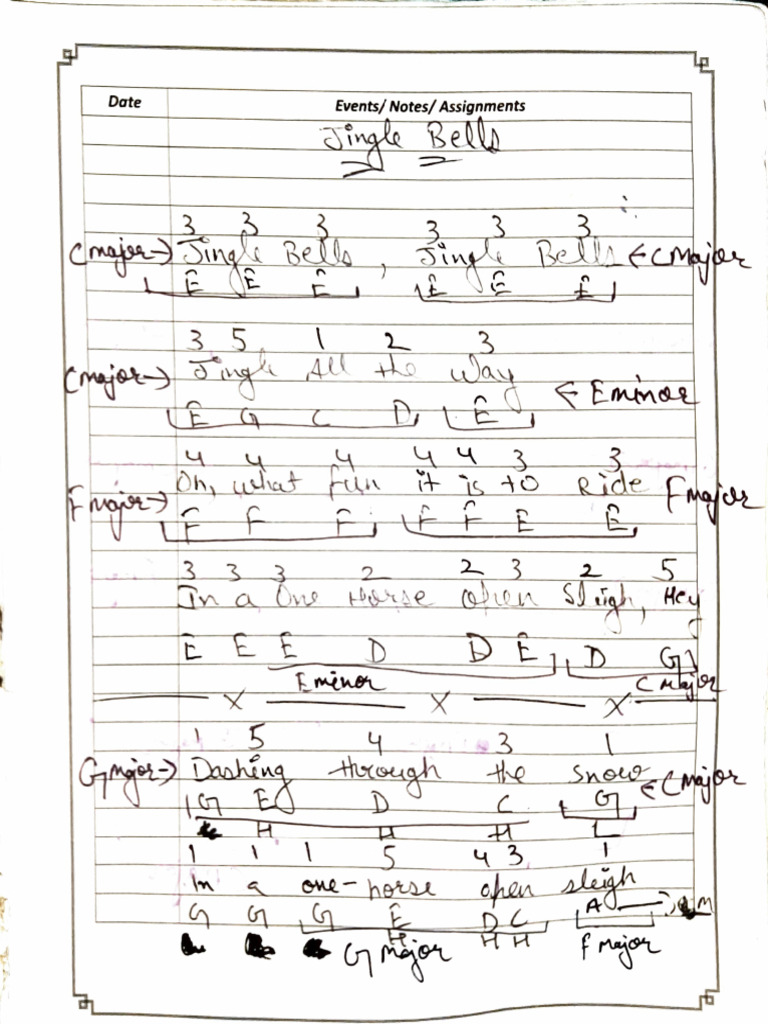 Date Events/ Notes/ Assignments
Jingle Bells
3 3 3 3 3 3
C major → Jingle Bells, Jingle Bells ← C Major
E E E E E E
3 5 1 2 3
C major → Jingle All the Way
E G C D E ← E minor
4 4 4 4 4 3 3
F major → Oh, what fun it is to Ride F major
F F F F F E E
3 3 3 2 2 3 2 5
In a One Horse open Sleigh, Hey
E E E D D E D G
E minor C major
X X X
1 5 4 3 1
G major → Dashing through the snow ← C major
G E D C G
H H H L
1 1 1 5 4 3 1
In a one-horse open sleigh
G G G E D C A
H H H
G major F major